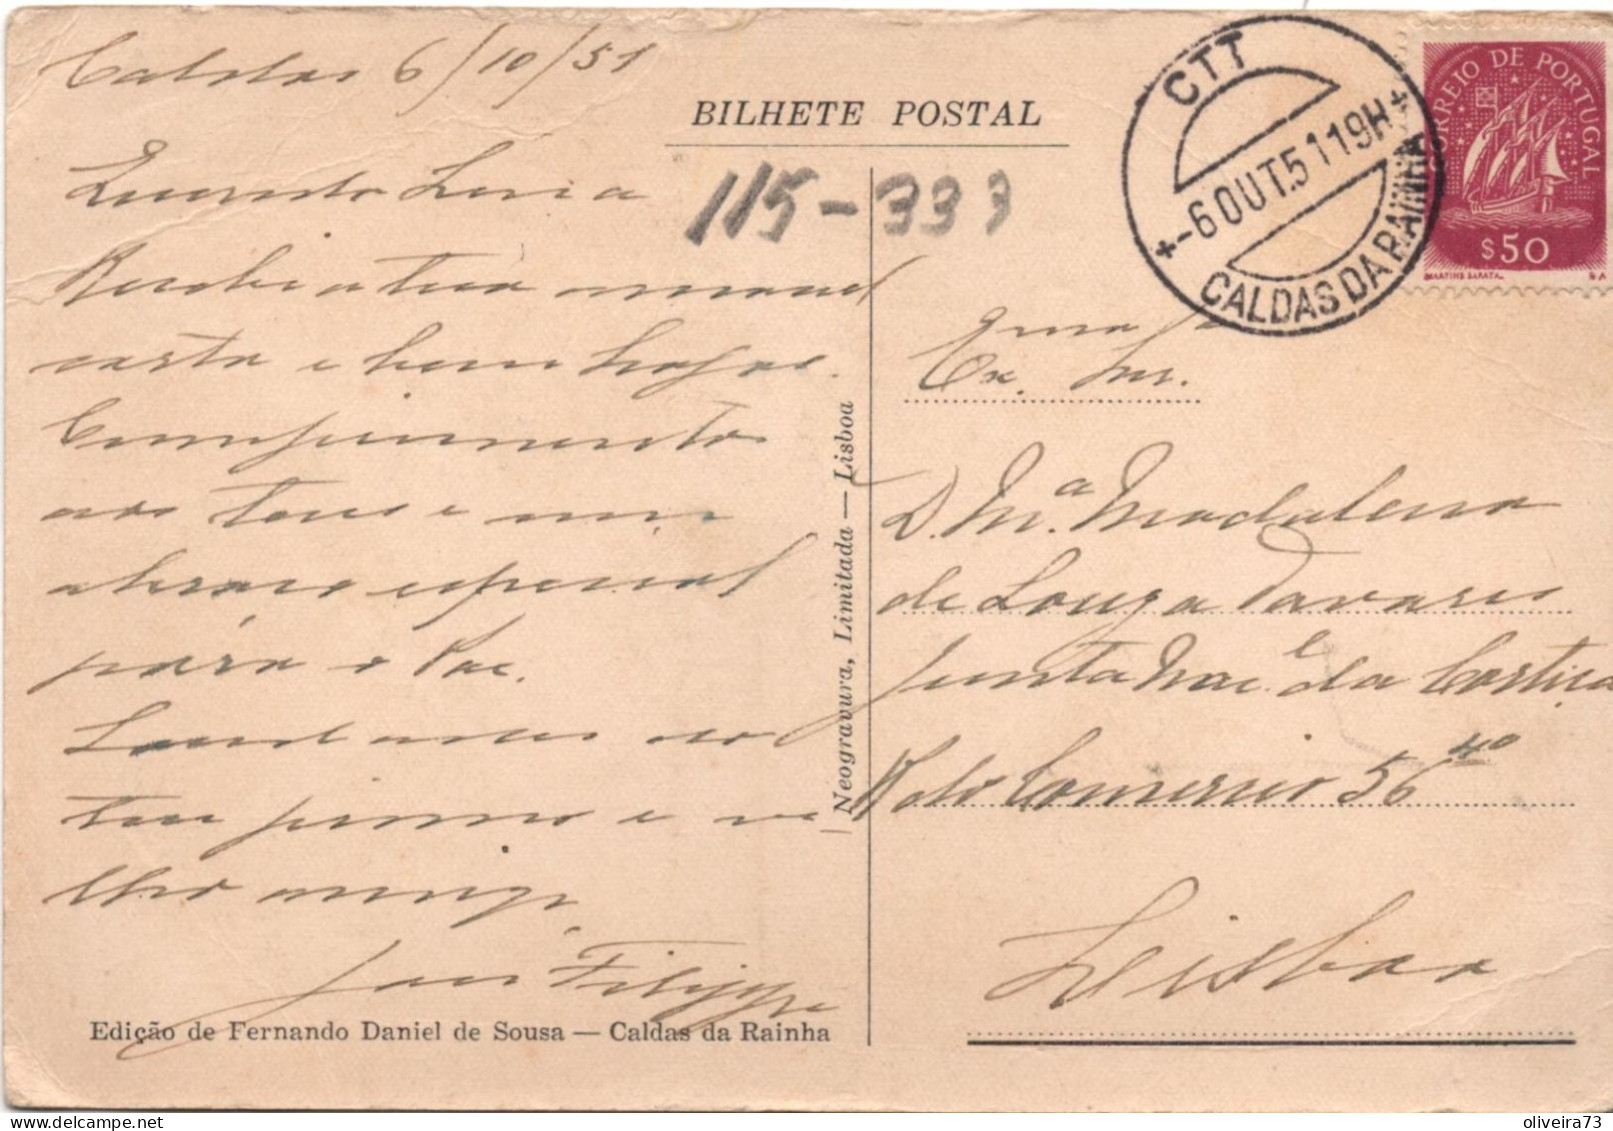 Caldas 6/10/51
BILHETE POSTAL
115-333
Recebi a tua
carta e
Cumprimentos
aos teus e um
abraço especial
para o Pae.
Saudades do
teu primo e ve
lho amigo
Filippe
Edição de Fernando Daniel de Sousa — Caldas da Rainha
Neogravura, Limitada — Lisboa
CTT
-6OUT.5119H
CALDAS DA RAINHA
CORREIO DE PORTUGAL
$50
MARTINS BARATA
Exma Sra
Ex. Sr.
D. Mª. Madalena
de Souza Tavares
Junta Nacl da Cortiça
R do Comercio 56 4º
Lisboa
oliveira73